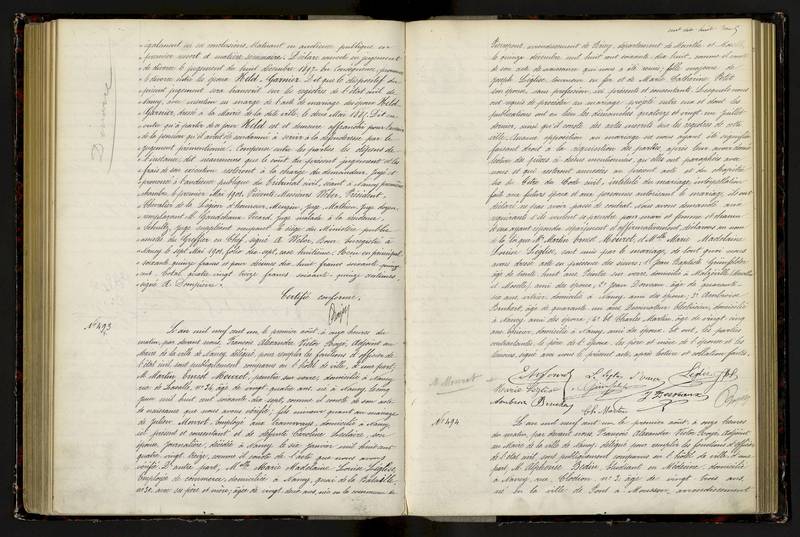 également en ses conclusions, statuant en audience publique en
premier ressort et matière sommaire. Déclare
de divorce le jugement du Décembre 1897. En conséquence, prononce
le divorce entre les époux Held - Garnier. Dit que le dispositif du
présent jugement sera transcrit sur les registres de l'état civil de
Nancy, mention en marge de l'acte de mariage des époux Held
Garnier, dressé à la mairie de la dite ville, le deux Mai 1885. Dit en
outre qu'à partir de ce jour Held est et demeure affranchi
de la pension qu'il avait été condamné à servir à la défenderesse par le
jugement. Compense entre les parties les dépens de
l'instance, dit néanmoins que le coût du présent jugement et les
frais de son exécution resteront à la charge du demandeur. Jugé et
prononcé à l'audience publique du Tribunal civil, séant à Nancy, première
chambre, le premier Mai 1901, Présents: Messieurs Weber, Président,
Chevalier de la Légion d'honneur, Mengin, juge, Mathieu, juge
remplaçant M. Gaudchaux Picard, juge malade
Schultz, juge suppléant occupant le siège du Ministère public
assistés du Greffier en Chef, signé A. Weber. Enregistré à
Nancy le sept Mai 1901, folio dix-sept, case huitième. Reçu en principal
soixante quinze francs et pour décimes dix huit francs soixante quinze
cent. Total quatre vingt treize francs soixante-quinze centimes,
signé
Certifié conforme.
Divorce
N° 493
L'an mil neuf cent un, le premier août, à onze heures du
matin, par devant nous, François Alexandre Victor Boyé, Adjoint au
Maire de la ville de Nancy, délégué pour remplir les fonctions d'officier de
l'état civil, sont publiquement comparus en l'hôtel de ville, d'une part,
M. Martin Ernest Mouret, peintre sur verre, domicilié à Nancy
rue de N° 34, âgé de vingt quatre ans, né à Nancy, le cinq
Juin mil huit cent soixante dix sept, comme il conste de son acte
de naissance que nous avons vérifié; fils mineur quant au mariage
de Julien Mouret, employé aux tramways, domicilié à Nancy
ici présent et consentant et de défunte Caroline
épouse, journalière, décédée à Nancy le six Janvier mil huit cent
quatre vingt treize, comme il conste de l'acte que nous avons
vérifié. D'autre part, Mlle Marie Madelaine Louise Léglise,
employée de commerce, domiciliée à Nancy, quai de la Bataille,
N° 20, avec ses père et mère, âgée de vingt deux ans, née en la commune de
Pierrepont, arrondissement de Briey, département de Meurthe et Moselle
le quinze décembre mil huit cent soixante dix huit, comme il conste
de son acte de naissance que nous avons vérifié; fille majeure de
Joseph Léglise, tourneur en fer et de Marie Catherine
son épouse, sans profession, ici présents et consentants. Lesquels nous
ont requis de procéder au mariage projeté entre eux et dont les
publications ont eu lieu les dimanches quatorze et vingt un juillet
dernier, ainsi qu'il conste des actes inscrits sur les registres de cette
ville. Aucune opposition au mariage ne nous ayant été signifiée
faisant droit à la réquisition des parties, après leur avoir donné
lecture des pièces ci-dessus mentionnées, qu'elles ont paraphées avec
nous et qui resteront annexées au présent acte et du chapitre
six du Titre du Code civil, intitulé du mariage, interpellation
faite aux futurs époux et aux personnes autorisant le mariage, ils ont
déclaré ne pas avoir passé de contrat. Nous avons demandé aux
requérants s'ils veulent se prendre pour mari et femme et chacun
d'eux ayant répondu séparément et affirmativement, déclarons au nom
de la loi que M. Martin Ernest Mouret, et Mlle Marie Madelaine
Louise Léglise, sont unis par le mariage, de tout quoi nous
avons dressé acte en présence des sieurs: 1° Jean Baptiste
âgé de trente huit ans, Peintre sur verre, domicilié à Malzéville (Meurthe
et Moselle) ami des époux; 2° Jean Dornaux âgé de quarante-
six ans, vitrier, domicilié à Nancy, ami des époux; 3° Ambroise
âgé de quarante un ans électricien, domicilié
à Nancy, ami des époux; 4° et Charles Martin, âgé de vingt cinq
ans, domicilié à Nancy, ami des époux. Et ont, les parties
contractantes, le père de l'époux, les père et mère de l'épouse et les
témoins, signé avec nous le présent acte, après lecture et collation faite.
Marie Léglise
Ch. Martin
Mouret
N° 494
L'an mil neuf cent un le premier août, à onze heures
du matin, par devant nous François Alexandre Victor Boyé, Adjoint
au Maire de la ville de Nancy, délégué pour remplir les fonctions d'officier
de l'état civil, sont publiquement comparus en l'hôtel de ville, d'une
part, M. Alphonse étudiant en Médecine, domicilié
à Nancy, rue Clodion N° 3, âgé de vingt trois ans,
né en la ville de Pont à Mousson, arrondissement